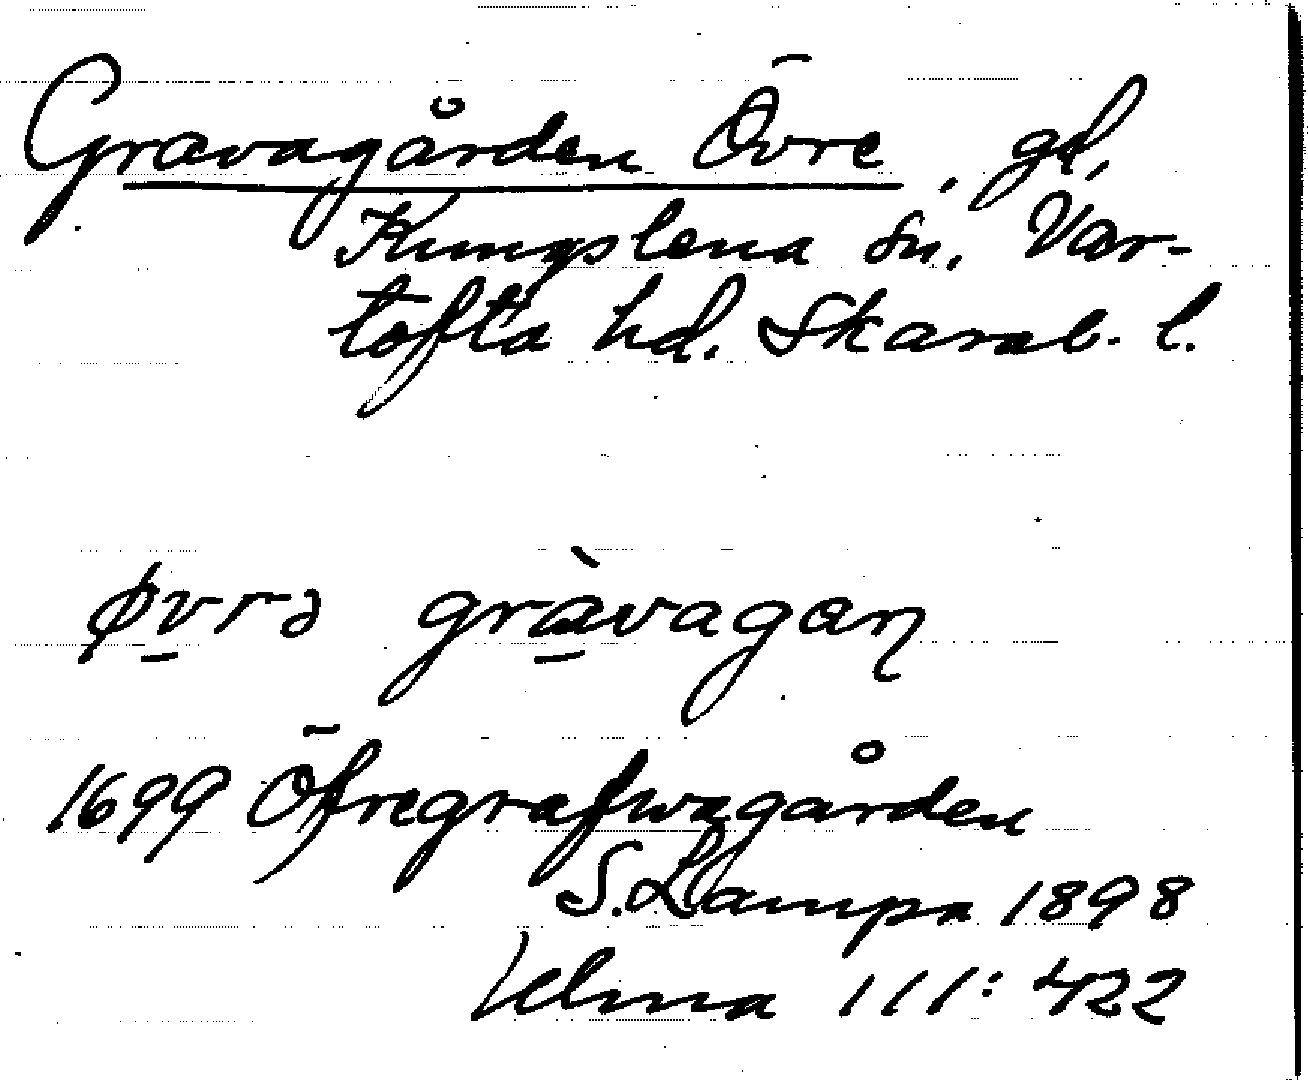 Gravagården Övre, gd,
Kungslena sn. Var-
tofta hd. Skarab. l.
øvrə gràvagaɳ
1699 Öfregrafwagården
S. Lampa 1898
111: 422